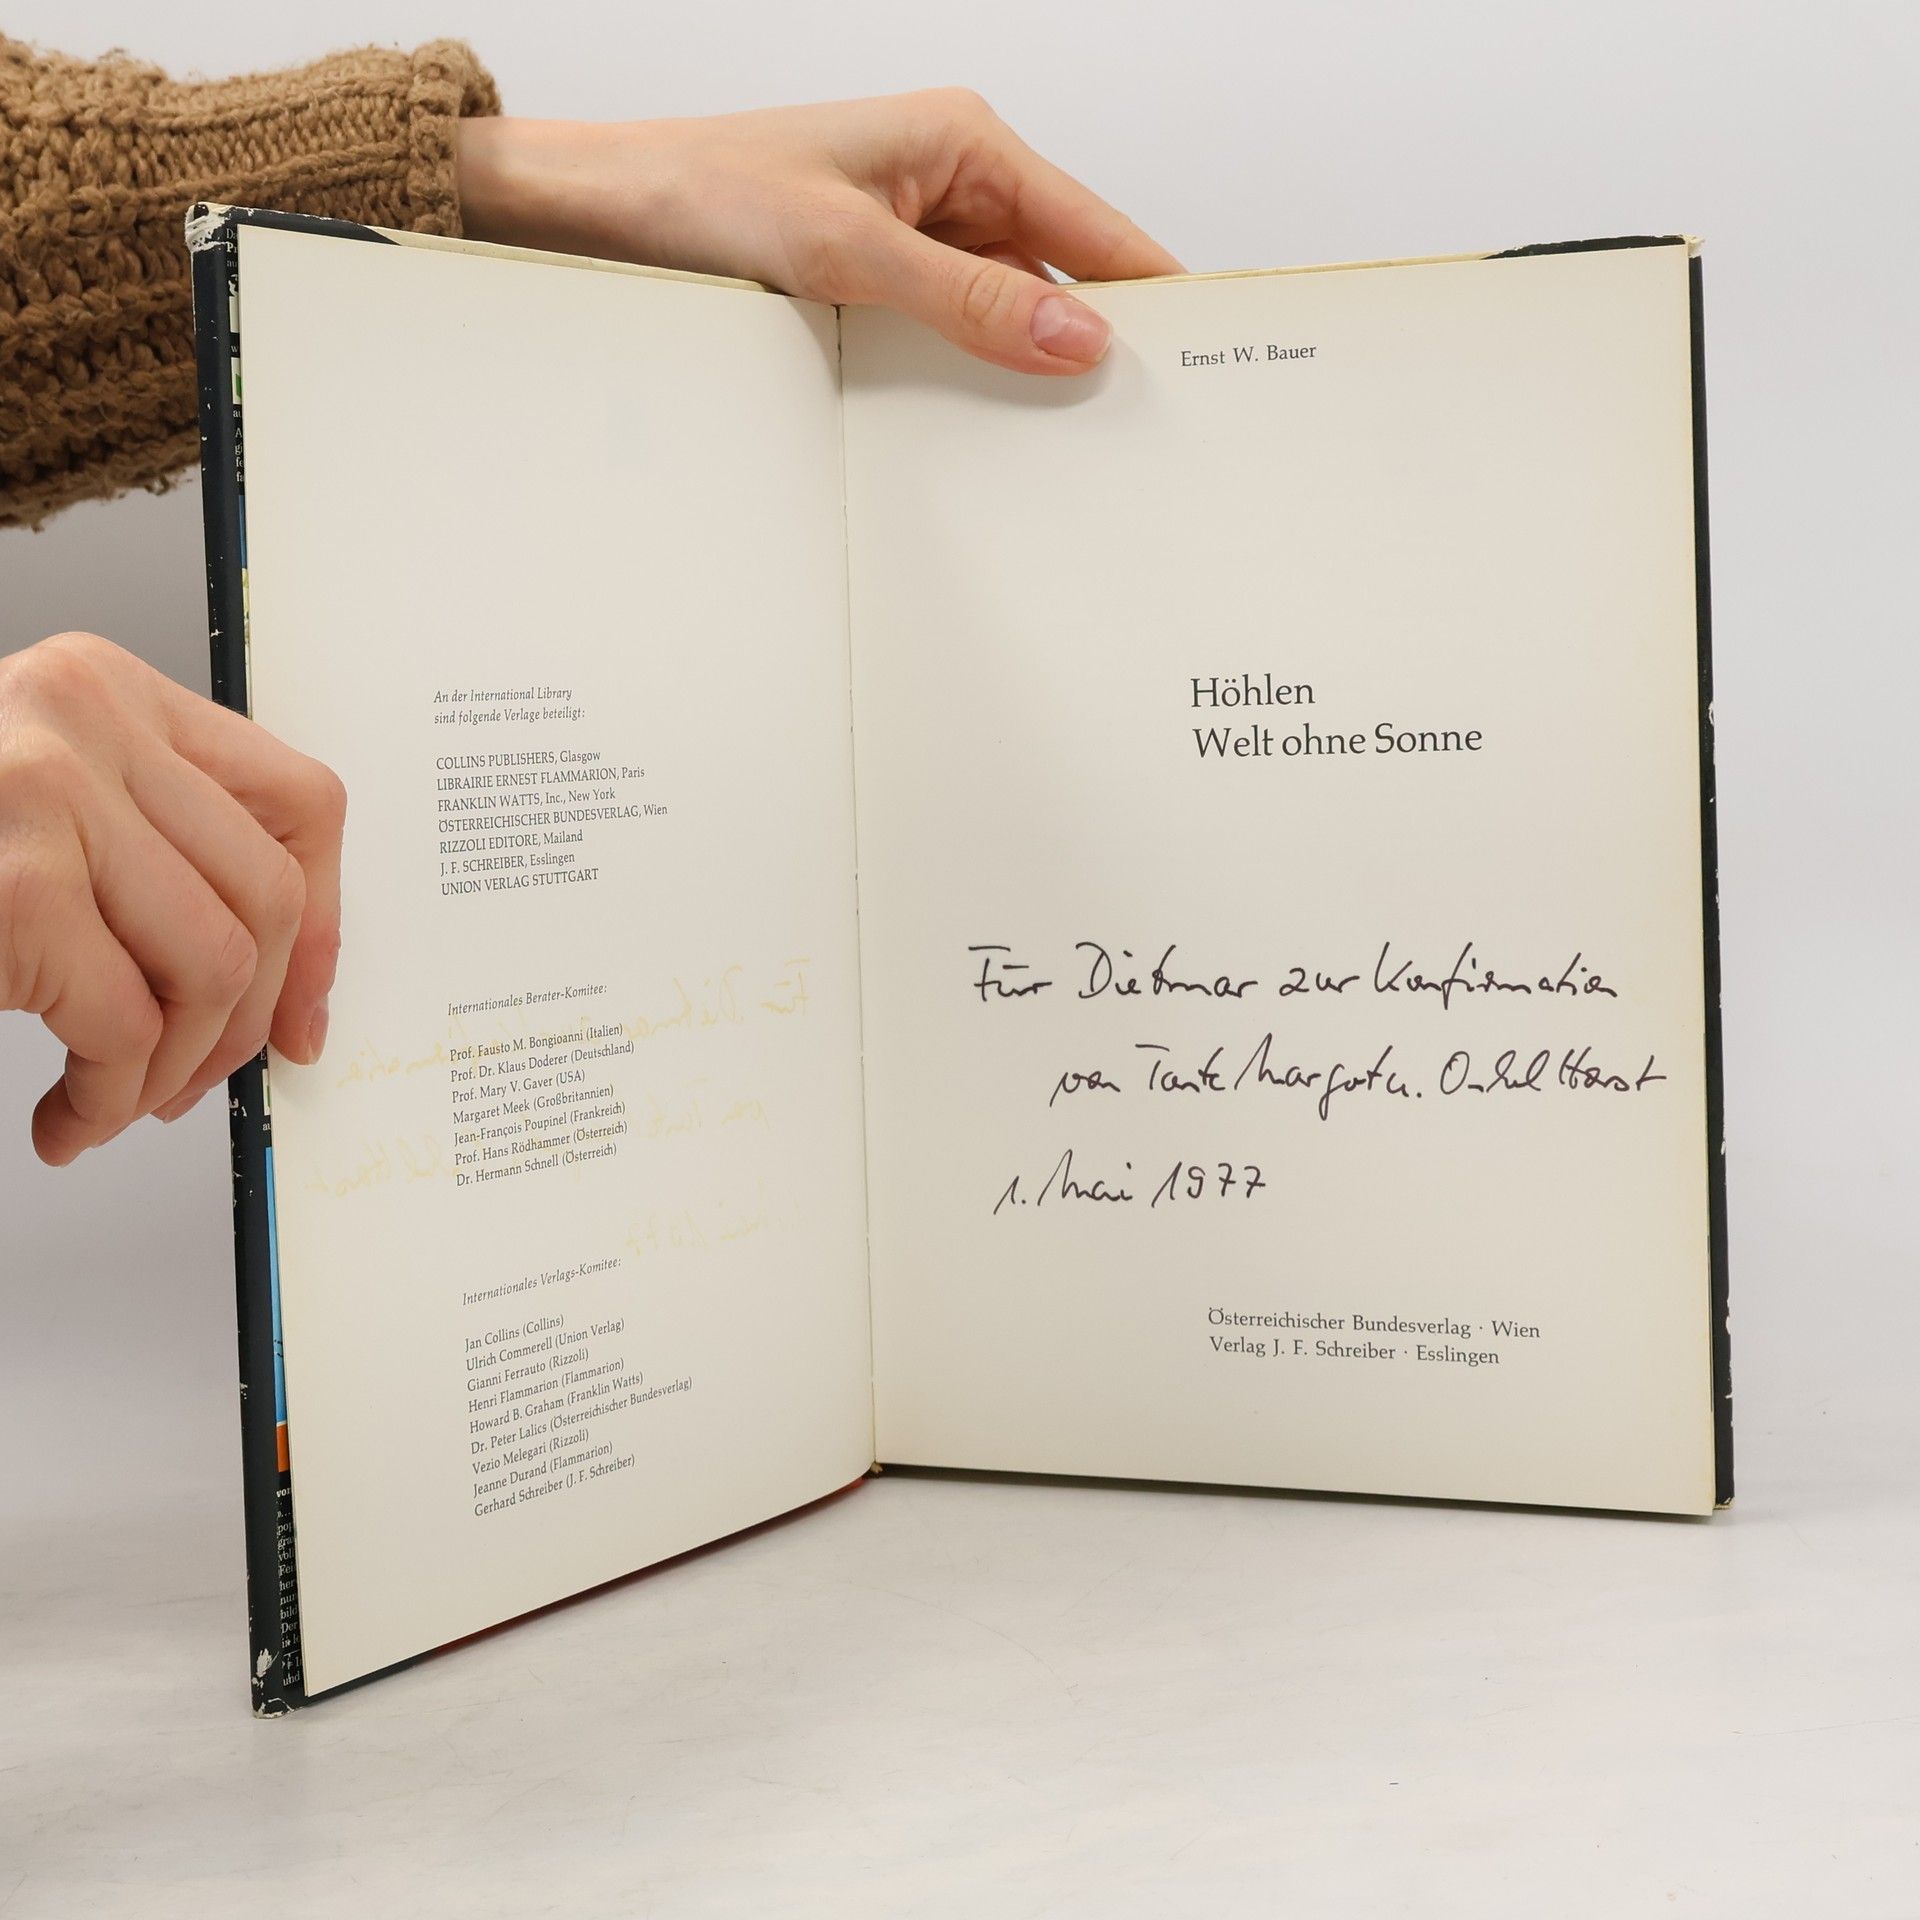 An der International Library
sind folgende Verlage beteiligt:
COLLINS PUBLISHERS, Glasgow
LIBRAIRIE ERNEST FLAMMARION, Paris
FRANKLIN WATTS, Inc., New York
ÖSTERREICHISCHER BUNDESVERLAG, Wien
RIZZOLI EDITORE, Mailand
J. F. SCHREIBER, Esslingen
UNION VERLAG STUTTGART
Internationales Berater-Komitee:
Prof. Fausto M. Bongioanni (Italien)
Prof. Dr. Klaus Doderer (Deutschland)
Prof. Mary V. Gaver (USA)
Margaret Meek (Großbritannien)
Jean-François Poupinel (Frankreich)
Prof. Hans Rödhammer (Österreich)
Dr. Hermann Schnell (Österreich)
Internationales Verlags-Komitee:
Jan Collins (Collins)
Ulrich Commerell (Union Verlag)
Gianni Ferrauto (Rizzoli)
Henri Flammarion (Flammarion)
Howard B. Graham (Franklin Watts)
Dr. Peter Lalics (Österreichischer Bundesverlag)
Vezio Melegari (Rizzoli)
Jeanne Durand (Flammarion)
Gerhard Schreiber (J. F. Schreiber)
Ernst W. Bauer
Höhlen
Welt ohne Sonne
Für Dietmar zur Konfirmation
von Tante Margot u. Onkel Horst
1. Mai 1977
Österreichischer Bundesverlag · Wien
Verlag J. F. Schreiber · Esslingen